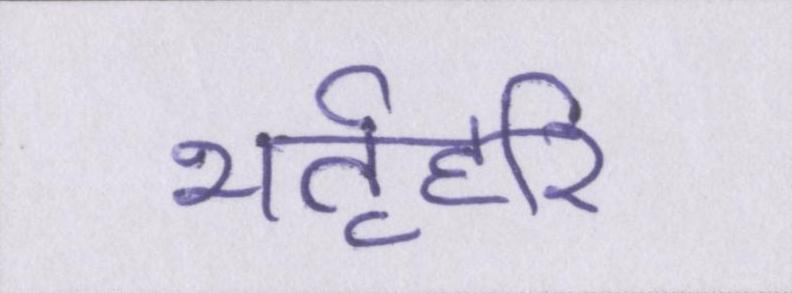 भर्तृहरि